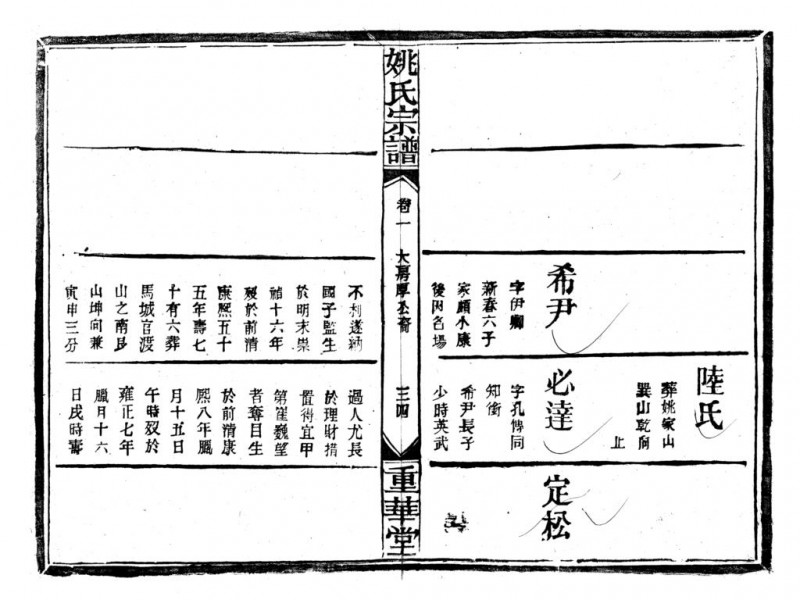 希尹
字伊卿
新春六子
家頗小康
後因名場
陸氏
葬姚家山
巽山乾向
上
必達
字孔傳同
知銜
希尹長子
少時英武
定松
姚氏宗譜
卷一
大房厚公裔
三四
重華堂
不利遂納
國子監生
於明末崇
禎十六年
歿於前清
康熙五十
五年壽七
十有六葬
馬城官渡
山之南艮
山坤向兼
寅申三分
過人尤長
於理財措
置得宜甲
第崔巍望
者奪目生
於前清康
熙八年臘
月十五日
午時歿於
雍正七年
臘月十六
日戌時壽